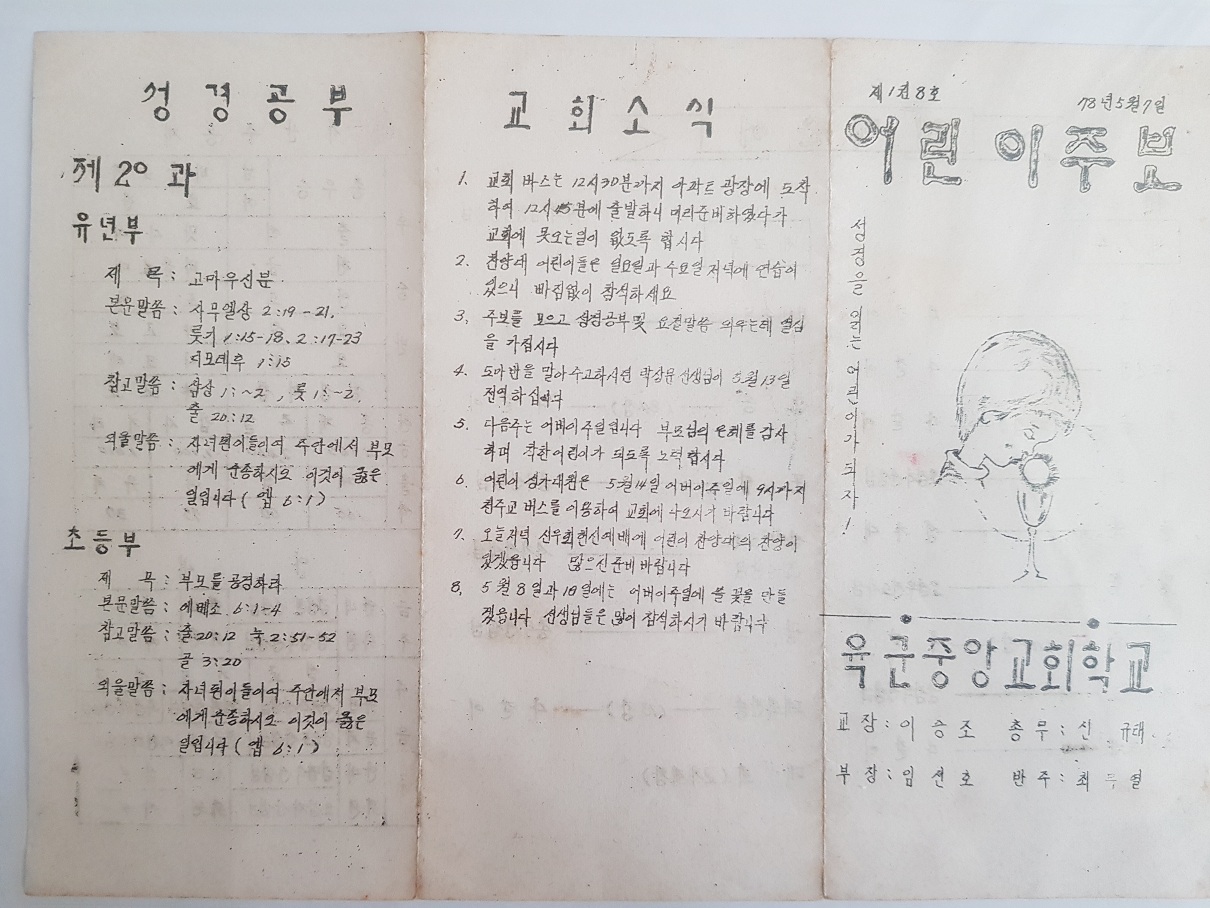 성경공부
제 20 과
유년부
제 목 : 고마우신분
본문말씀 : 사무엘상 2:19-21,
룻기 1:15-18, 2:17-23
디모데후 1:15
참고말씀 : 삼상 1:~2, 룻 1:~2
출 20:12
외울말씀 : 자녀된이들이여 주안에서 부모
에게 순종하시오 이것이 옳은
일입니다 ( 엡 6:1 )
초등부
제 목 : 부모를 공경하라
본문말씀 : 에베소 6:1-4
참고말씀 : 출20:12 눅2:51-52
골 3:20
외울말씀 : 자녀된이들이여 주안에서 부모
에게 순종하시오 이것이 옳은
일입니다 ( 엡 6:1 )
교회소식
1. 교회 버스는 12시30분까지 아파트 광장에 도착
하여 12시45분에 출발하니 미리준비하였다가
교회에 못오는일이 없도록 합시다
2. 찬양대 어린이들은 일요일과 수요일 저녁에 연습이
있으니 빠짐없이 참석하세요
3. 주보를 모으고 성경공부및 요절말씀 외우는데 열심
을 가집시다
4. 도마반을 맡아 수고하시던 박상문 선생님이 5월 13일
전역하십니다
5. 다음주는 어버이주일입니다 부모님의 은혜를 감사
하며 착한어린이가 되도록 노력합시다
6. 어린이 성가대원은 5월14일 어버이주일에 9시까지
천주교 버스를 이용하여 교회에 나오시기 바랍니다
7. 오늘저녁 신우회헌신예배에 어린이 찬양대의 찬양이
있겠읍니다 많으신준비 바랍니다
8. 5월 8일과 10일에는 어버이주일에 쓸 꽃을 만들
겠읍니다 선생님들은 많이 참석하시기 바랍니다
제1권8호
78년5월7일
어린이주보
성경을 읽는 어린이가 되자!
육군중앙교회학교
교장 : 이 승조 총무 : 신 규태
부장 : 임 선호 반주 : 최 열